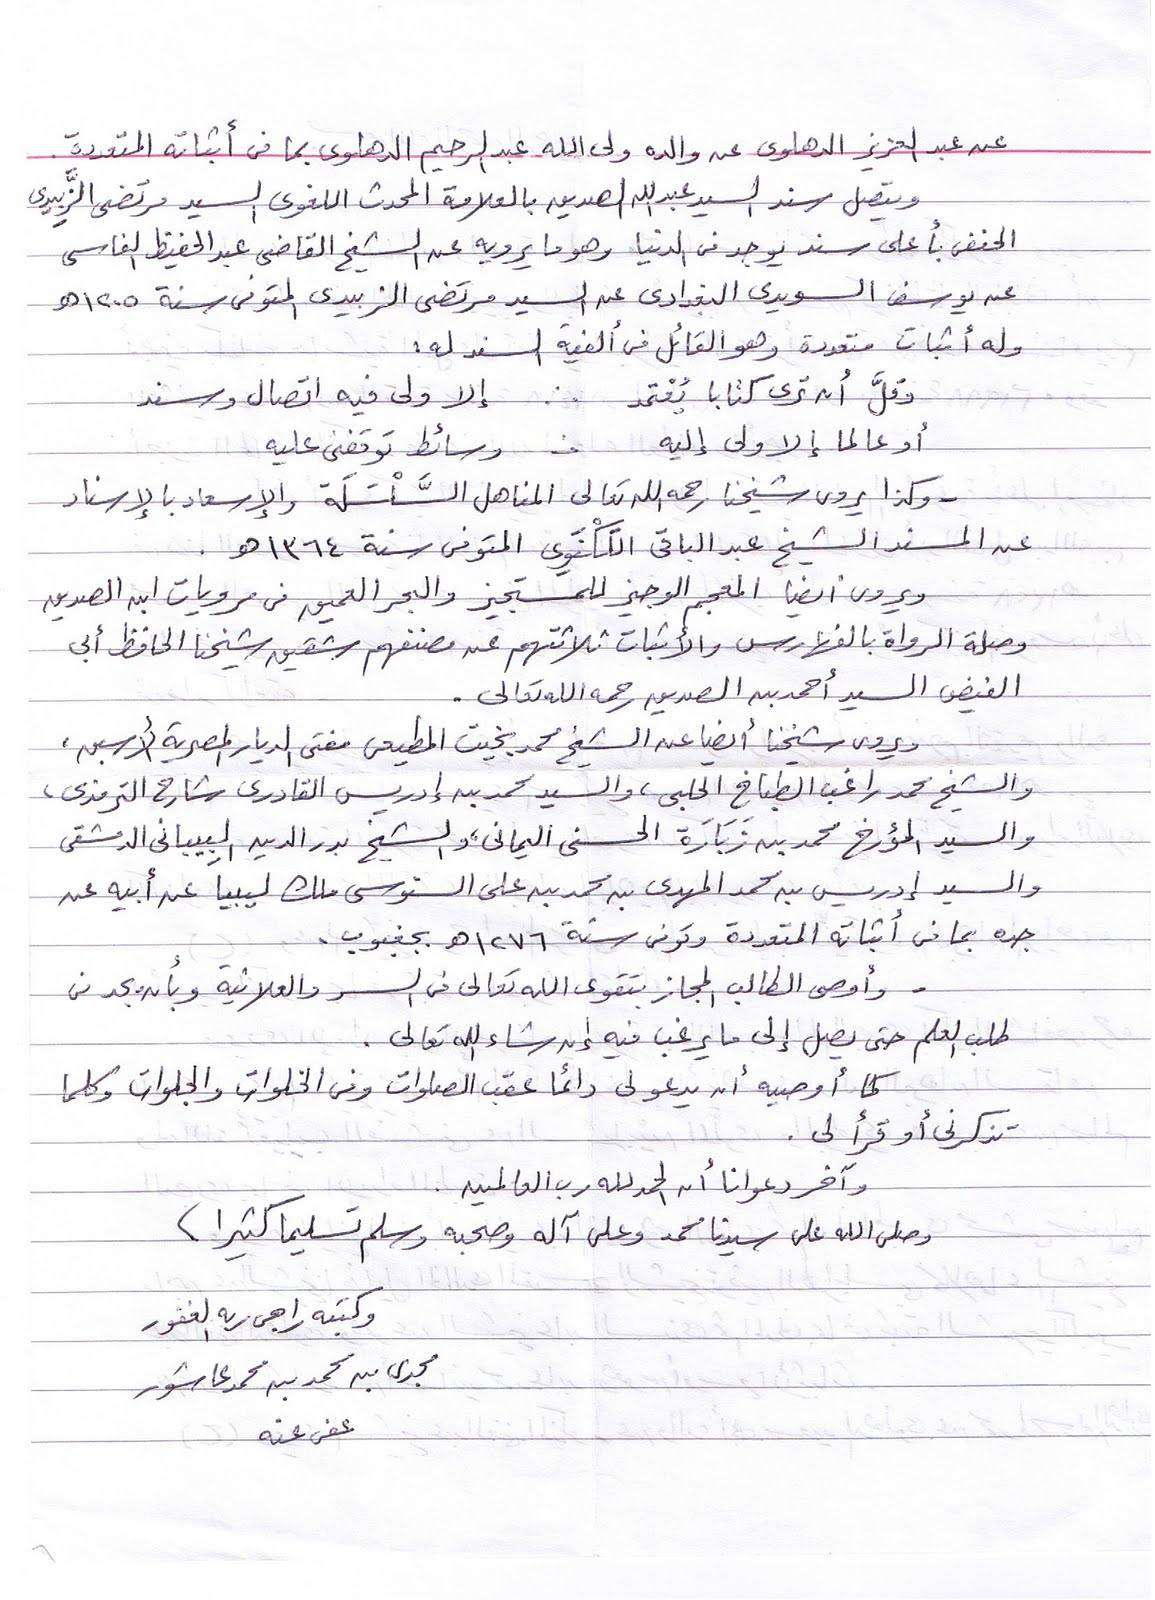 عن عبد العزيز الدهلوى عن والده ولى الله عبد الرحيم الدهلوى بما فى أثباته المتعددة .
ويتصل سند السيد عبد الله الصديق بالعلامة المحدث اللغوى السيد مرتضى الزَّبيدى
الحنفى بأعلى سند يوجد فى الدنيا وهو ما يرويه عن الشيخ القاضى عبد الحفيظ الفاسى
عن يوسف السويدى البغدادى عن السيد مرتضى الزبيدى المتوفى سنة ١٢٠٥ هـ
وله أثبات متعددة وهو القائل فى ألفية السند له :
وقلَّ أن ترى كتابا يُعْتمد ∴ إلا ولى فيه اتصال وسند
أو عالما إلا ولى إليه ∴ وسائط توقفنى عليه
- وكذا يروى شيخنا رحمه الله تعالى المناهل السَّلْسَلَة والإسعاد بالإسناد
عن المسند الشيخ عبد الباقى اللَّكْنَوِى المتوفى سنة ١٣٦٤ هـ .
ويروى أيضا المعجم الوجيز للمستجيز والبحر العميق فى مرويات ابن الصديق
وصلة الرواة بالفهارس والأثبات ثلاثتهم عن مصنفهم شقيق شيخنا الحافظ أبى
الفيض السيد أحمد بن الصديق رحمه الله تعالى .
ويروى شيخنا أيضا عن الشيخ محمد بخيت المطيعى مفتى الديار المصرية الأسبق ،
والشيخ محمد راغب الطباخ الحلبى ، والسيد محمد بن إدريس القادرى شارح الترمذى ،
والسيد المؤرخ محمد بن زَبَارَة الحسنى اليمانى ، والشيخ بدر الدين البيبانى الدمشقى
والسيد إدريس بن محمد المهدى بن محمد بن على السنوسى ملك ليبيا عن أبيه عن
جده بما فى أثباته المتعددة وتوفى سنة ١٢٧٦ هـ بجغبوب .
- وأوصى الطالب المجاز بتقوى الله تعالى فى السر والعلانية وبأن يجد فى
طلب العلم حتى يصل إلى ما يرغب فيه إن شاء الله تعالى .
كما أوصيه أن يدعو لى دائما عقب الصلوات وفى الخلوات والجلوات وكلما
تذكرنى أو قرأ لى .
وآخر دعوانا أن الحمد لله رب العالمين .
وصلى الله على سيدنا محمد وعلى آله وصحبه وسلم تسليما كثيرا
وكتبه راجى ربه الغفور
مجدى بن محمد بن محمد عاشور
عفى عنه